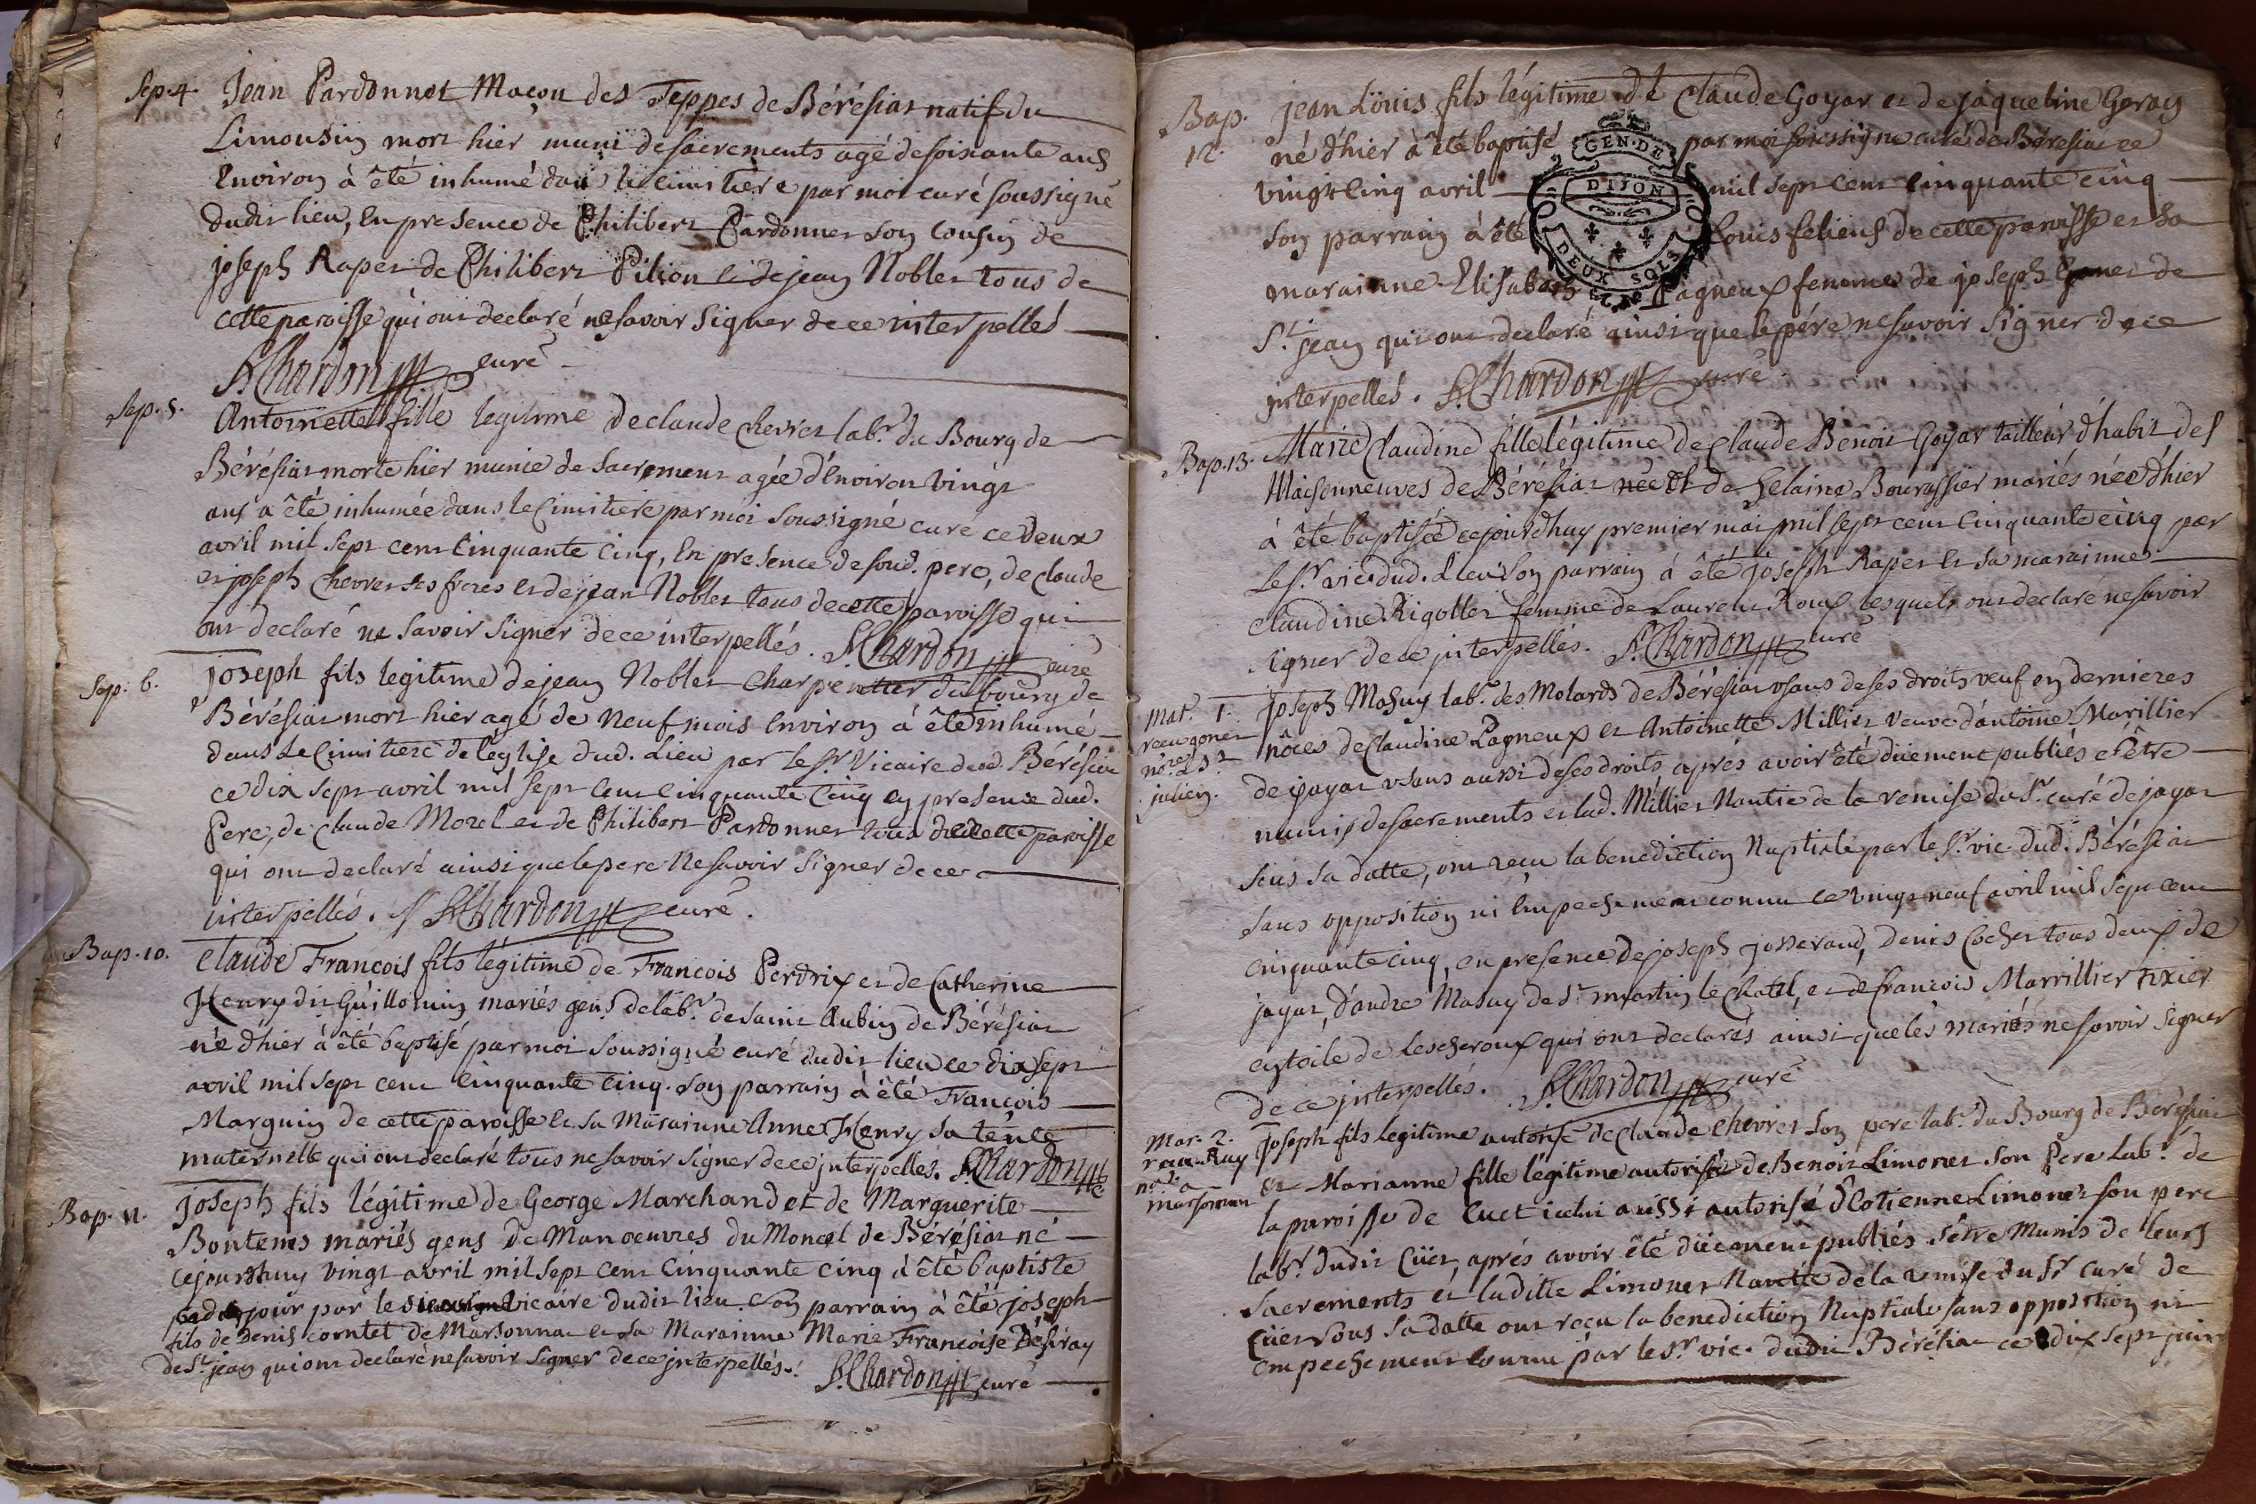 Sep. 4. Jean Pardonnet Maçon des Teppes de Bérésiat natif du
Limousin mort hier muni de sacrements agé de soixante ans
Environ à été inhumé dans le cimitière par moi curé soussigné
dudit lieu, En presence de Philibert Pardonnet son cousin de
joseph Rapet de Philibert Pilion et de jean Noblet tous de
cette paroisse qui ont declaré ne savoir signer de ce interpellés
Chardon curé
Sep. 5. Antoinette fille legitime de claude Chevret labr. du Bourg de
Bérésiat morte hier munie de sacrement agée d'Environ vingt
ans a été inhumée dans le Cimitiere par moi soussigné curé ce deux
avril mil sept cent Cinquante Cinq, En presence de sond. pere, de Claude
et joseph Chevret ses freres et de jean Noblet tous de cette paroisse qui
ont declaré ne savoir signer de ce interpellés. Chardon curé
Sep. 6. joseph fils legitime de jean Noblet Charpentier du bourg de
Bérésiat mort hier agé de Neuf mois Environ à été inhumé
dans Le Cimitiere de l'église dud. Lieu par le Sr. Vicaire dud. Bérésiat
ce dix sept avril mil sept Cent Cinquante Cinq en presence dud.
Pere, de Claude Morel et de Philibert Pardonnet tous de cette paroisse
qui ont declaré ainsi que le pere Ne savoir signer de ce
interpellés. Chardon curé.
Bap. 10. Claude François fils légitime de François Perdrix et de Catherine
Henry dit Guillomin mariés gens de labr. de saint Aubin de Bérésiat
né d'hier à été baptisé par moi soussigné curé dudit lieu ce dix sept
avril mil sept cent Cinquante Cinq. son parrain à été François
Marguin de cette paroisse et sa Maraine Anne Henry sa tente
maternelle qui ont declaré tous ne savoir signer de ce interpellés. Chardon
Bap. 11. Joseph fils légitime de George Marchand et de Marguerite
Bontems mariés gens de Manoeuvres du Moncel de Bérésiat né
cejourdhuy vingt avril mil sept cent Cinquante cinq à été baptisé
jour par le vicaire dudit lieu. Son parrain à été joseph
fils de Denis corntet de Marsonnat et sa Marainne Marie Françoise Désiray
de St. jean qui ont declaré ne savoir signer de ce interpellés. Chardon curé
Bap. 12. jean Loüis fils légitime de Claude Goyat et de jaqueline Geray
né d'hier à été baptisé par moi soussigné curé de Bérésiat ce
vingt Cinq avril mil sept cent Cinquante cinq
Son parrain à été Louis feliens de cette paroisse et sa
marainne Elisabeth Pagneux femme de joseph de
St. jean qui ont declaré ainsi que le pére ne savoir signer de ce
interpellés. Chardon curé.
GEN. DE
DIJON
DEUX SOLS
Bap. 13. Marie Claudine fille légitime de Claude Benoit Goyat tailleur d'habit des
Maisonneuves de Bérésiat née et de helaine Bourassier mariés née d'hier
à été baptisée cejourdhuy premier mai mil sept cent Cinquante cinq par
le Sr. vic. dud. Lieu son parrain à été joseph Rapet et sa marainne
Claudine Rigollet femme de Laurent Roux lesquels ont declaré ne savoir
signer de ce interpellés. Chardon curé
Mar. 1. joseph Mahuy labr. des Molards de Bérésiat usant de ses droits veuf en dernieres
nôces de Claudine Pagneux et Antoinette Millier veuve d'antoine Marillier
julien. de jayat usant aussi de ses droits aprés avoir été düement publiés et être
munis de sacrements et lad. Millier Nantie de la remise du Sr. curé de jayat
sous sa datte, ont reçu la benediction Nuptiale par le Sr. vic. dud. Bérésiat
sans opposition ni Empechement connu ce vingt neuf avril mil sept cent
cinquante cinq, en presence de joseph josserand, denis Cochet tous deux de
jayat, d'andre Mahuy de St. martin le Chatel, et de françois Marrillier tixier
en toile de Lescheroux qui ont declarés ainsi que les mariés ne savoir signer
de ce interpellés. Chardon curé
Mar. 2. joseph fils legitime autorisé de Claude Chevret son pere labr. du Bourg de Bérésiat
et Marianne fille légitime autorisée de Benoit Limonet son Pere Labr. de
la paroisse de Cuet icelui aüssi autorisé d'Eotienne Limonet son pere
labr. dudit Cüet, aprés avoir été düement publiés s'être Munis de leurs
sacrements et laditte Limonet Nantie de la remise du Sr. curé de
Cüet sous sa datte ont reçu la benediction Nuptiale sans opposition ni
empechement connu par le Sr. vic. dudit Bérésiat ce dix sept juin